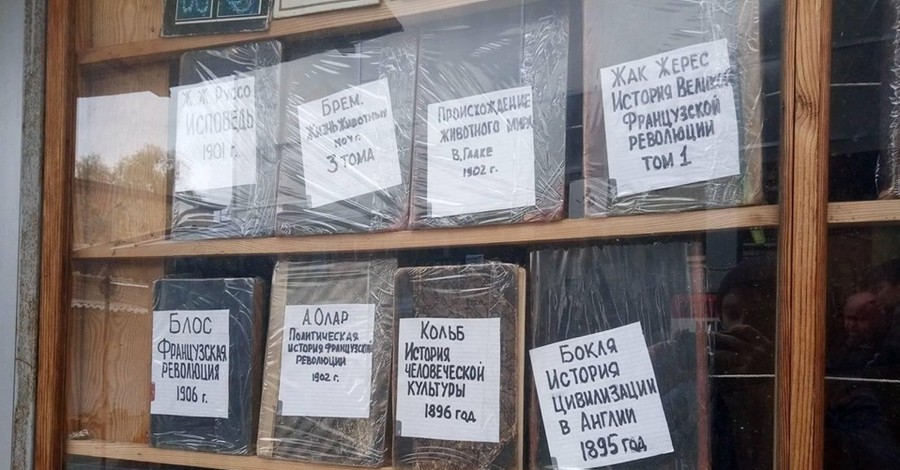 Ж. Ж. Руссо
Исповедь
1901 г.
Брем.
Жизнь животных
3 тома
Происхождение
животного мира
В. Гааке
1902 г.
Жак Жерес
История Великой
Французской
революции
том 1
Блос
Французская
революция
1906 г.
А. Олар
Политическая
история Французской
революции
1902 г.
Кольб
История
человеческой
культуры
1896 год
Бокля
История
цивилизации
в Англии
1895 год